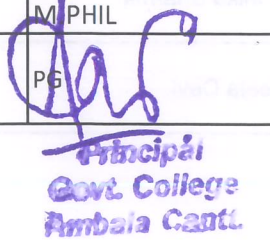 M PHIL
PG
Principal
Govt. College
Ambala Cantt.